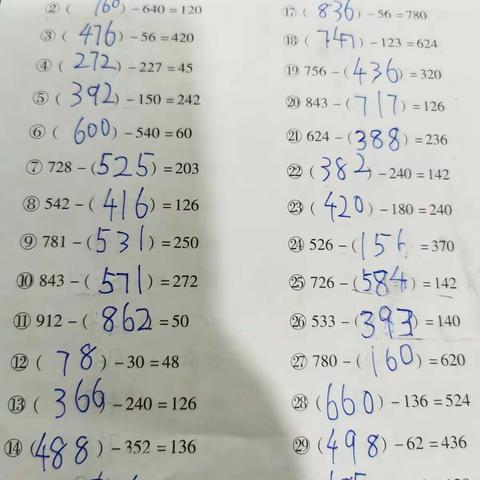 ② ( 760 ) −640=120
③ ( 476 ) −56=420
④ ( 272 ) −227=45
⑤ ( 392 ) −150=242
⑥ ( 600 ) −540=60
⑦ 728−( 525 ) =203
⑧ 542−( 416 ) =126
⑨ 781−( 531 ) =250
⑩ 843−( 571 ) =272
⑪ 912−( 862 ) =50
⑫ ( 78 ) −30=48
⑬ ( 366 ) −240=126
⑭ ( 488 ) −352=136
⑰ ( 836 ) −56=780
⑱ ( 747 ) −123=624
⑲ 756−( 436 ) =320
⑳ 843−( 717 ) =126
㉑ 624−( 388 ) =236
㉒ ( 382 ) −240=142
㉓ ( 420 ) −180=240
㉔ 526−( 156 ) =370
㉕ 726−( 584 ) =142
㉖ 533−( 393 ) =140
㉗ 780−( 160 ) =620
㉘ ( 660 ) −136=524
㉙ ( 498 ) −62=436